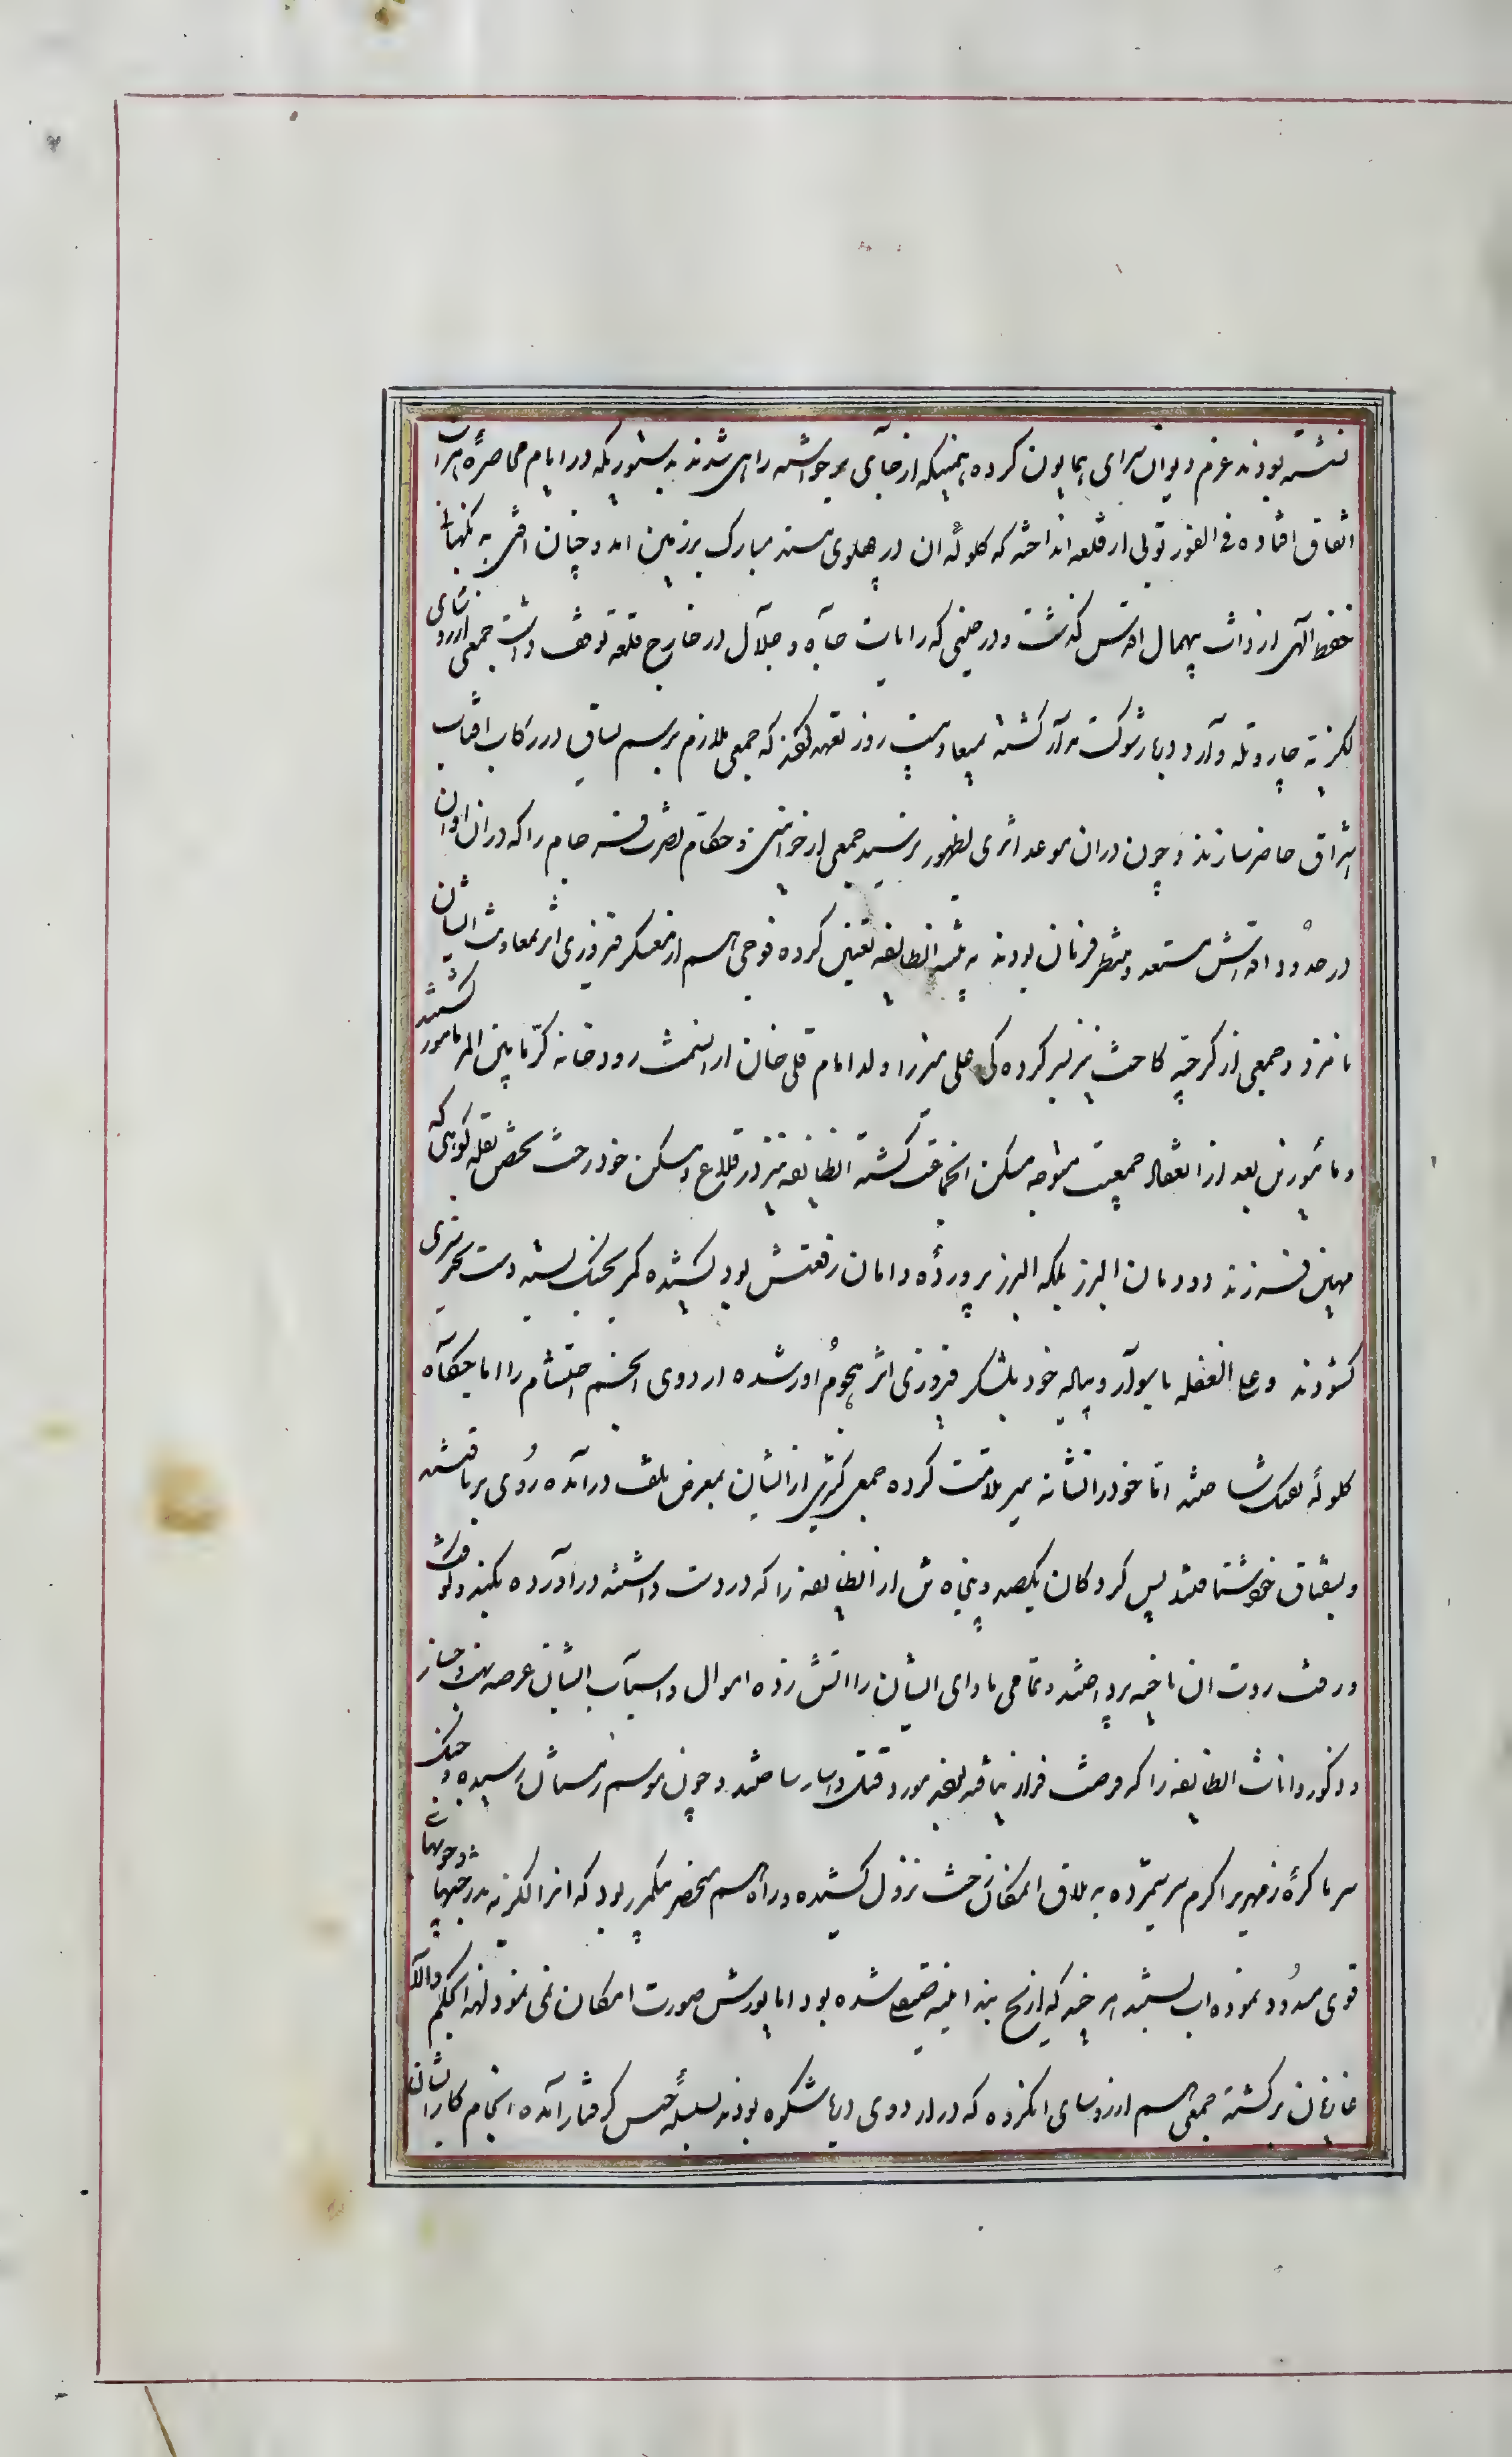 نشسته بودند عزم دیوان سرای همایون کرده همینکه از جای برخواسته راهی شدند بدستوریکه در ایام محاصره هرات
اتفاق افتاده فی الفور توپی از قلعه انداخته که کلوله ان در پهلوی مسند مبارک برزمین امد و چنان افتی به نکهبانی
حفظ الهی از ذات بیهمال اقدس کذشت و در حینی که رایات جاه و جلال در خارج قلعه توقف داشت جمعی از روسای
لکزیه جار و تله وارد دربار شوکت مدار کشته بمیعاد بیست روز تعهد کردند که جمعی ملازم برسم یساق در رکاب افتاب
اشراق حاضر سازند و چون در ان موعد اثری بظهور نرسید جمعی از خوانین و حکام نصرت فرجام را که در ان اوان
در حدود اقداش مستعد و منتظر فرمان بودند به تنبیه انطایفه تعیین کرده فوجی هم از معسکر فیروزی اثر بمعاونت ایشان
نامزد و جمعی از کرجیه کاخت نیز بسرکرده کی علی میرزا ولد امام قلی خان از انسمت رودخانه کر تا بین المر مامور کشتند
و مامورین بعد از انعقاد جمعیت متوجه مسکن انجماعت کشته انطایفه نیز در قلاع و مسکن خود رخت تحصن بقله کوهی که
مهین فرزند دودمان البرز بلکه البرز پرورده دامان رفعتش بود کشیده کمر بجنک بسته دست بخیره سری
کشودند و علی الغفله با سوار و پیاده خود بلشکر فیروزی اثر هجوم اور شده اردوی انجم احتشام را اماجکاه
کلوله تفنک ساختند اما خود را نشانه تیر ملامت کرده جمعی کثیر از ایشان بمعرض تلف درآمده روی برتافتند
و بسقناق خود شتافتند پس کردکان یکصد و پنجاه تن از انطایفه را که در دست داشتند درآورده بکند و کوب
و رفت روت ان ناحیه پرداختند و تمامی ماوای ایشان را اتش زده اموال و اسباب ایشان عرصه نهب و
و ذکور و اناث انطایفه را که فرصت فرار نیافته بودند مورد قتل و اسار ساختند و چون موسم زمستان رسیده و جنک
سرما کره زمهریر اکرم سیر میشمرده به یلاق امکان رخت نزول کشیده و راه هم منحصر بیکممر بود که انرا لکزیه بدرختها و چوبهای
قوی مسدود نموده اب بستند هر چند که از یخ بند ابنیه ضیق شده بود اما یورش صورت امکان نمی نمود لهذا بحکم والا
غازیان برکشته جمعی هم از روسای انکروه که در اردوی دریا شکوه بودند بسلسله حبس کرفتار آمده انجام کار ایشان